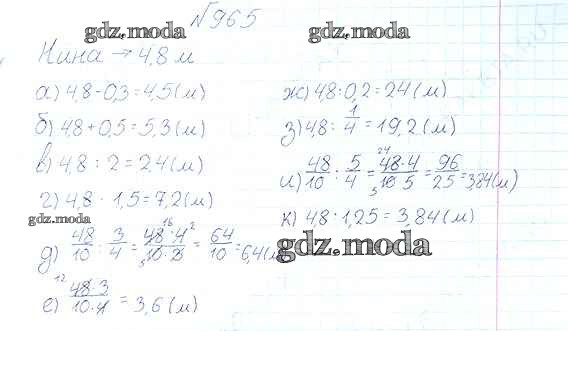 №965
gdz.moda gdz.moda
Нина → 4,8 м
а) 4,8 - 0,3 = 4,5 (м)
б) 4,8 + 0,5 = 5,3 (м)
в) 4,8 : 2 = 2,4 (м)
г) 4,8 · 1,5 = 7,2 (м)
gdz.moda
д) 48/10 : 3/4 = 48 16 · 4 2 / 5 10 · 3 = 64/10 = 6,4 (м)
е) 12 48 · 3 / 10 · 4 = 3,6 (м)
ж) 4,8 : 0,2 = 24 (м)
з) 4,8 : 1/4 = 19,2 (м)
и) 48/10 : 5/4 = 24 48 · 4 / 5 10 · 5 = 96/25 = 3,84 (м)
к) 4,8 : 1,25 = 3,84 (м)
gdz.moda